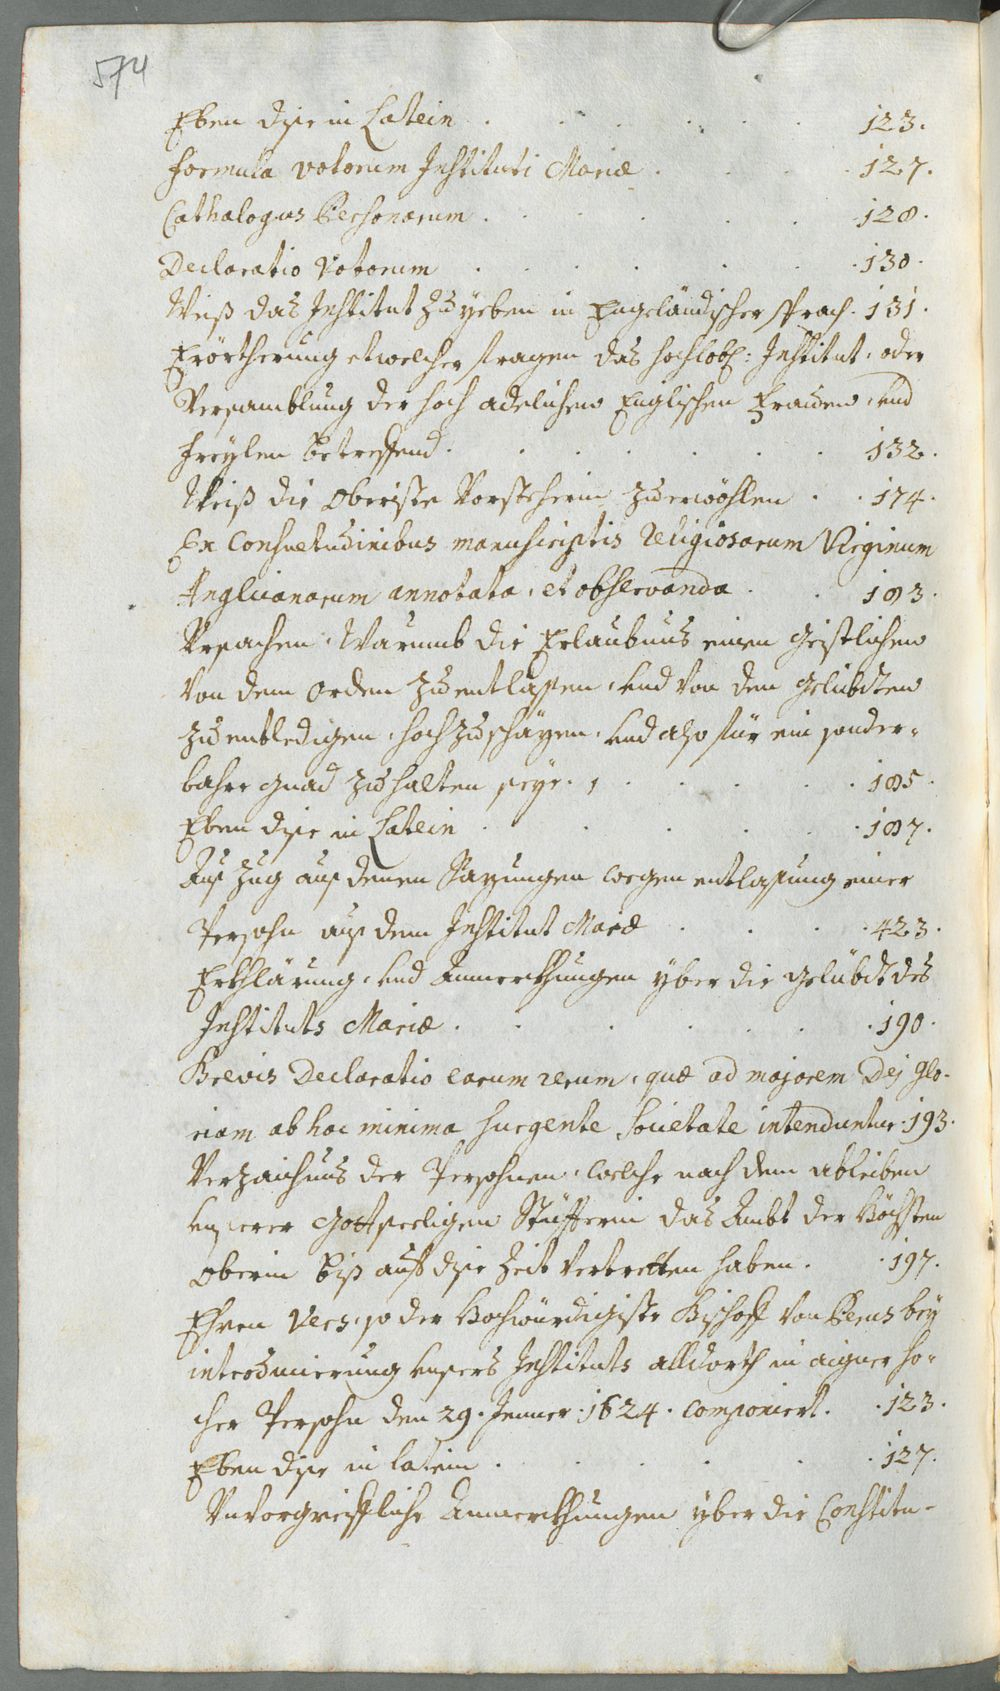 574
Eben dise in Latein . . . . . . 123.
formula votorum Instituti Mariæ . . . 127.
Cathalogus Personarum . . . . . 128.
Declaratio Votorum . . . . . . 130.
Weiß das Institut zu geben in Engeländischer sprach. 131.
Erörtherung etwelcher fragen das hochlobl: Institut, oder
Versamblung der hoch adelichen Englischen Frauen, und
freylen betreffend. . . . . . . 132.
Weiß die Oberiste Vorsteherin zu erwöhlen . . 174.
Ex Consuetudinibus manuscriptis religiosarum Virginum
Anglicanarum annotata, et observanda . . 183.
Ursachen, Warumb die Erlaubnus einen Geistlichen
von dem Orden zu entlassen, und von den gelübdten
zu entledigen, hoch zu schäzen, und also für ein sonder-
bahre gnad zu halten seye. . . . . . 185.
Eben dise in Latein . . . . . . 187.
Auszug aus denen Sazungen wegen entlassung einer
Persohn aus dem Institut Mariæ . . . . 423.
Erkhlärung, und Anmerckhungen yber die gelübdt des
Instituts Mariæ . . . . . . 190.
Brevis Declaratio earum rerum, quæ ad majorem Dej glo-
riam ab hac minima surgente Societate intenduntur. 193.
Verzaichnus der Persohnen, welche nach dem ableiben
unserer Gottseeligen Stüffterin das Ambt der Höchsten
Oberin biß auf dise Zeit vertretten haben. . 197.
Ehren Vers, so der Hochwürdigiste Bischoff von Perus bey
introducierung unsers Instituts alldorth in aigner ho-
cher Persohn den 29. Jenner. 1624. componiert. . 123.
Eben dise in latein . . . . . . 127.
Unvorgreiffliche Anmerckhungen yber die Constitu-